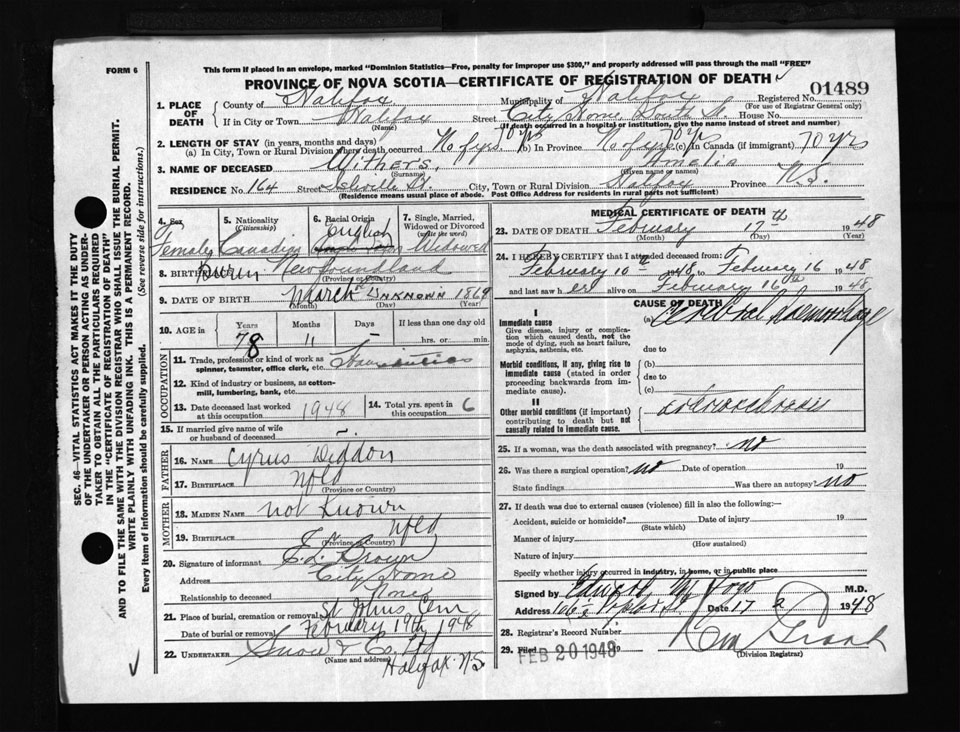 FORM 6
This form if placed in an envelope, marked "Dominion Statistics—Free, penalty for improper use $300," and properly addressed will pass through the mail "FREE"
PROVINCE OF NOVA SCOTIA—CERTIFICATE OF REGISTRATION OF DEATH
01489
1. PLACE OF DEATH County of Halifax Municipality of Halifax Registered No.
(For use of Registrar General only)
If in City or Town Halifax Street City Home, South St. House No.
(Name) (If death occurred in a hospital or institution, give the name instead of street and number)
2. LENGTH OF STAY (in years, months and days)
(a) In City, Town or Rural Division where death occurred No of yrs. 70 yrs (b) In Province No of yrs 70 yrs (c) In Canada (if immigrant) 70 yrs
3. NAME OF DECEASED Withers, Amelia
(Surname) (Given name or names)
RESIDENCE No. 164 Street St. City, Town or Rural Division Halifax Province N.S.
(Residence means usual place of abode. Post Office Address for residents in rural parts not sufficient)
4. Sex Female
5. Nationality (Citizenship) Canadian
6. Racial Origin English
7. Single, Married, Widowed or Divorced (write the word) Widowed
8. BIRTHPLACE Burin Newfoundland
(Province or Country)
9. DATE OF BIRTH March Unknown 1869
(Month) (Day) (Year)
10. AGE in Years Months Days If less than one day
78 11 – hrs. or min.
OCCUPATION
11. Trade, profession or kind of work as spinner, teamster, office clerk, etc.
12. Kind of industry or business, as cotton-mill, lumbering, bank, etc.
13. Date deceased last worked at this occupation 1948
14. Total yrs. spent in this occupation 6
15. If married give name of wife or husband of deceased –
FATHER
16. NAME Cyrus Diddon
17. BIRTHPLACE Nfld
(Province or Country)
MOTHER
18. MAIDEN NAME not known
19. BIRTHPLACE Nfld
(Province or Country)
20. Signature of informant Brown
Address City Home
Relationship to deceased None
21. Place of burial, cremation or removal St Johns Cem
Date of burial or removal February 19th 1948
22. UNDERTAKER Snow & Co Ltd
(Name and address) Halifax N.S
MEDICAL CERTIFICATE OF DEATH
23. DATE OF DEATH February 17th 1948
(Month) (Day) (Year)
24. I HEREBY CERTIFY that I attended deceased from:
February 10th 1948 to February 16 1948
and last saw her alive on February 16th 1948
CAUSE OF DEATH
I
Immediate cause (a) Cerebral haemorrhage
Give disease, injury or complication which caused death, not the mode of dying, such as heart failure, asphyxia, asthenia, etc.
due to
Morbid conditions, if any, giving rise to immediate cause (stated in order proceeding backwards from immediate cause).
(b)
due to
(c)
II
Other morbid conditions (if important) contributing to death but not causally related to immediate cause.
25. If a woman, was the death associated with pregnancy? no
26. Was there a surgical operation? no Date of operation 19
State findings Was there an autopsy? no
27. If death was due to external causes (violence) fill in also the following:—
Accident, suicide or homicide? Date of injury 19
(State which)
Manner of injury
(How sustained)
Nature of injury
Specify whether injury occurred in industry, in home, or in public place
Signed by Edward M. M.D.
Address Date 17 2 1948
28. Registrar's Record Number
29. Filed FEB 20 1948 19
(Division Registrar)
SEC. 46—VITAL STATISTICS ACT MAKES IT THE DUTY
OF THE UNDERTAKER OR PERSON ACTING AS UNDER-
TAKER TO OBTAIN ALL THE PARTICULARS REQUIRED
IN THE "CERTIFICATE OF REGISTRATION OF DEATH"
AND TO FILE THE SAME WITH THE DIVISION REGISTRAR WHO SHALL ISSUE THE BURIAL PERMIT.
WRITE PLAINLY WITH UNFADING INK. THIS IS A PERMANENT RECORD.
Every item of information should be carefully supplied. (See reverse side for instructions.)